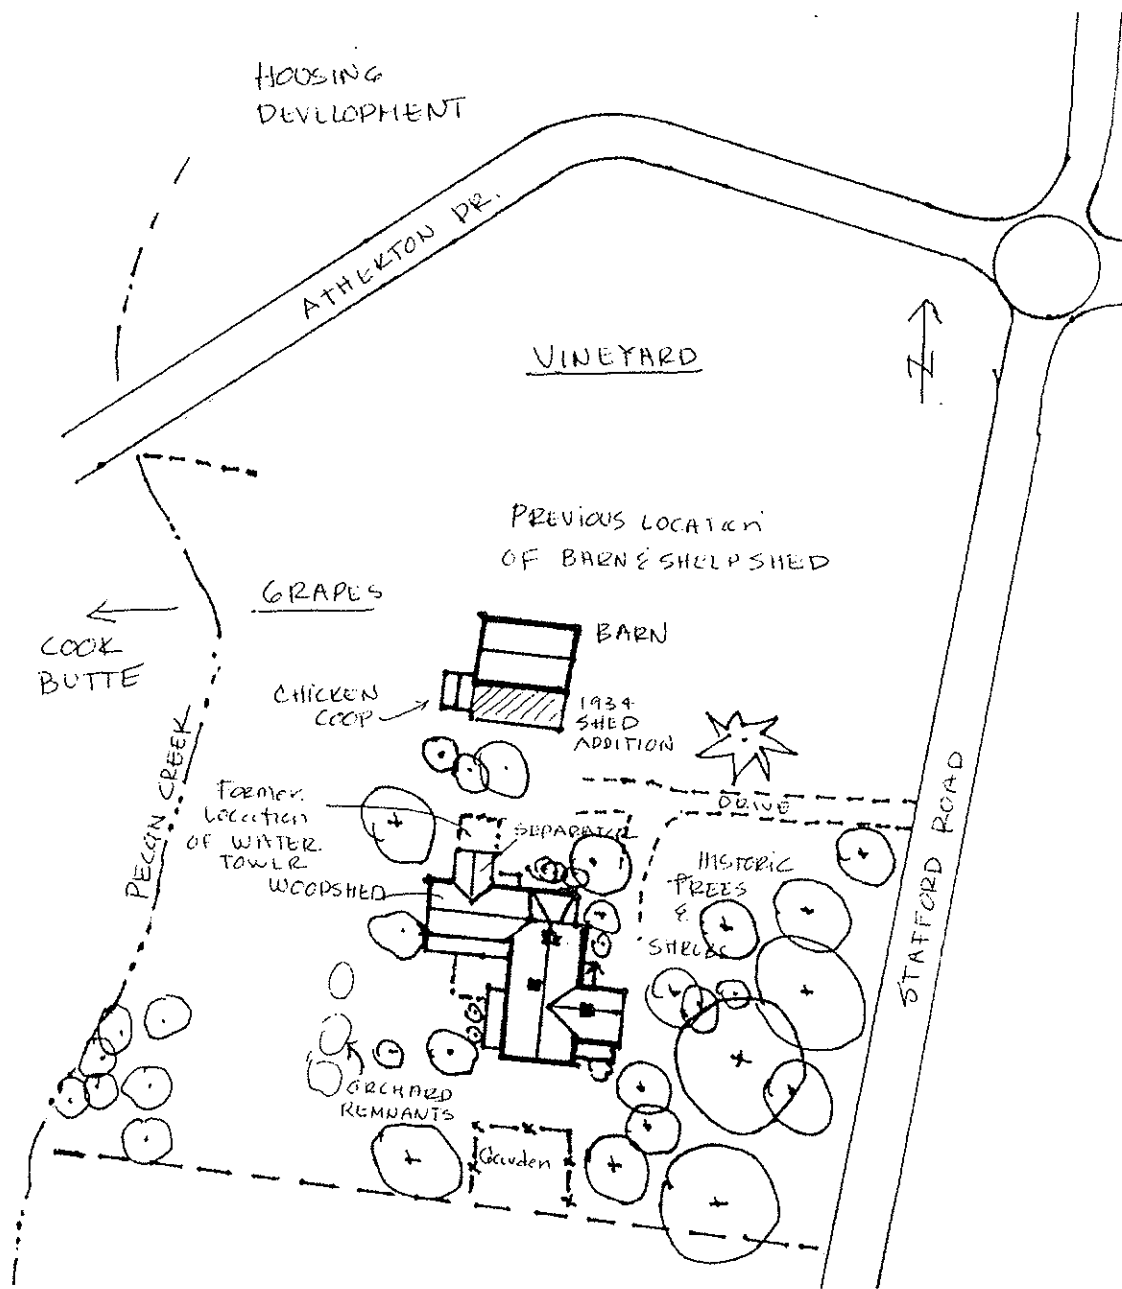 HOUSING
DEVELOPMENT
ATHERTON DR.
VINEYARD
N
PREVIOUS LOCATION
OF BARN & SHEEP SHED
GRAPES
COOK
BUTTE
BARN
CHICKEN
COOP
1934
SHED
ADDITION
PECAN CREEK
DRIVE
Former
Location
OF WATER
TOWER
SEPARATOR
WOODSHED
HISTORIC
TREES
&
SHRUBS
STAFFORD ROAD
ORCHARD
REMNANTS
Garden